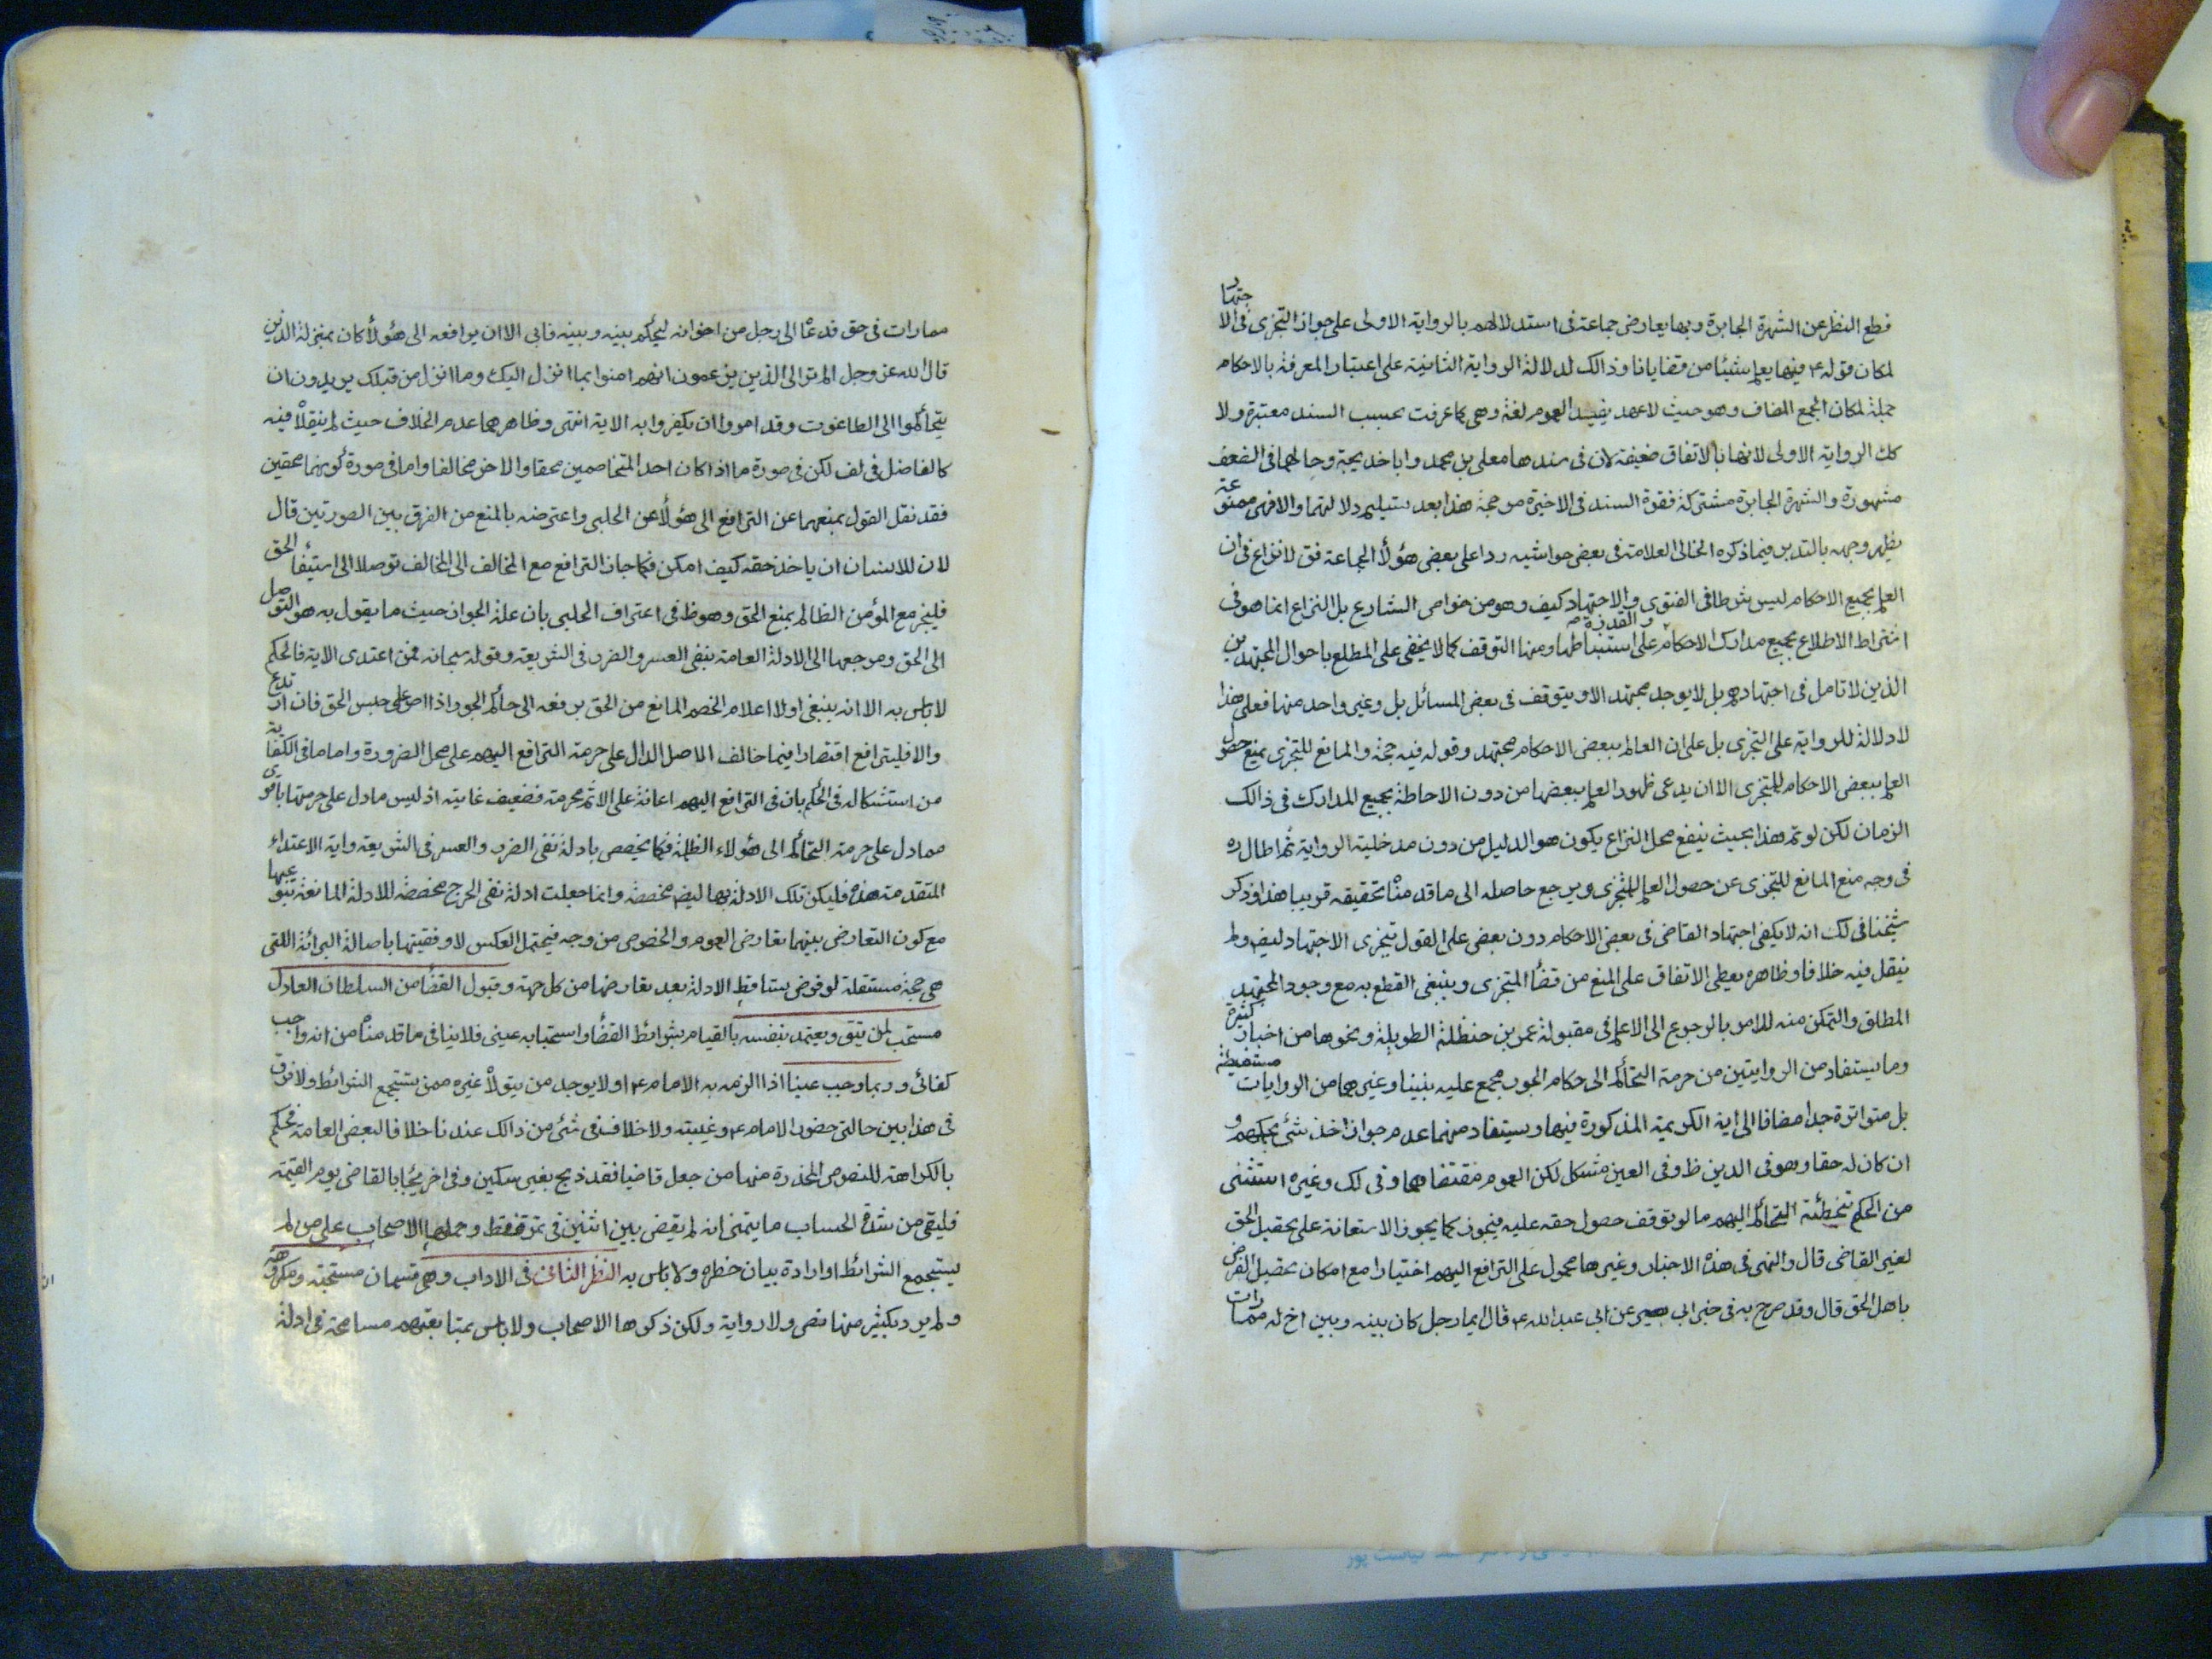 قطع النظر عن الشهرة الجابرة وبها يعارض جماعة فى استدلالهم بالرواية الاولى على جواز التجزى فى الاجتهاد
لمكان قوله ع فيها يعلم شيئا من قضايانا وذالك لدلالة الرواية الثانية على اعتبار المعرفة بالاحكام
جملة لمكان الجمع المضاف وهو حيث لا عهد يفيد العموم لغة وهى كما عرفت بحسب السند معتبرة ولا
كك الرواية الاولى لانها بالاتفاق ضعيفة لان فى سندها معلى بن محمد وابا خديجة وحالهما فى الضعف
مشهورة والشهرة الجابرة مشتركة فقوة السند فى الاخيرة مرجحة هذا بعد تسليم دلالتهما والا فهى ممنوعة
يظهر وجهه بالتدبر فيما ذكره الخالى العلامة فى بعض حواشيه ردا على بعض هؤلأ الجماعة فق لا نزاع فى ان
العلم بجميع الاحكام ليس شرطا فى الفتوى والاجتهاد كيف وهو من خواص الشارع بل النزاع انما هو فى
اشتراط الاطلاع بجميع مدارك الاحكام والقدرة على استنباطها ومنها التوقف كما لا يخفى على المطلع باحوال المجتهدين
الذين لا تامل فى اجتهادهم بل لا يوجد مجتهد الا ويتوقف فى بعض المسائل بل وغير واحد منها فعلى هذا
لا دلالة للرواية على التجزى بل على ان العالم ببعض الاحكام مجتهد وقوله فيه حجة والمانع للتجزى يمنع حصول
العلم ببعض الاحكام للمتجزى الا ان يدعى ظهور العلم ببعضها من دون الاحاطة بجميع المدارك فى ذالك
الزمان لكن لو تم هذا بحيث ينفع محل النزاع يكون هو الدليل من دون مدخلية الرواية ثم اطال ره
فى وجه منع المانع للتجزى عن حصول العلم للمتجزى ويرجع حاصله الى ما قدمنا تحقيقه قريبا هذا وذكر
شيخنا فى لك انه لا يكفى اجتهاد القاضى فى بعض الاحكام دون بعض على القول بتجزى الاجتهاد ليض ولم
ينقل فيه خلافا وظاهره يعطى الاتفاق على المنع من قضأ المتجزى وينبغى القطع به مع وجود المجتهد
المطلق والتمكن منه للامر بالرجوع الى الاعلم فى مقبولة عمر بن حنظلة الطويلة ونحوها من اخبار كثيرة
وما يستفاد من الروايتين من حرمة التحأكم الى حكام الجور مجمع عليه بيننا وغيرهما من الروايات مستفيضة
بل متواترة جدا مضافا الى اية الكريمة المذكورة فيها ويستفاد منهما عدم جواز اخذ شئ بحكمهم و
ان كان له حقا وهو فى الدين ظ وفى العين مشكل لكن العموم مقتضاهما وفى لك وغيره استثنى
من الحكم بتخطئة التحأكم اليهم ما لو توقف حصول حقه عليه فيجوز كما يجوز الاستعانة على تحصيل الحق
لغير القاضى قال والنهى فى هذه الاخبار وغيرها محمول على الترافع اليهم اختيارا مع امكان تحصيل الغرض
باهل الحق قال وقد صرح به فى خبر ابى بصير عن ابى عبد الله ع قال ايما رجل كان بينه وبين اخ له ممارات
ممارات فى حق فدعا الى رجل من اخوانه ليحأكم بينه وبينه فابى الا ان يرافعه الى هؤلأ كان بمنزلة الذين
قال الله عز وجل الم تر الى الذين يزعمون انهم امنوا بما انزل اليك وما انزل من قبلك يريدون ان
يتحأكموا الى الطاغوت وقد امروا ان يكفروا به الاية انتهى وظاهرهما عدم الخلاف حيث لم ينقلا فيه
كالفاضل فى لف لكن فى صورة ما اذا كان احد المتخاصمين محقا والاخر مخالفا واما فى صورة كونهما محقين
فقد نقل القول بمنعهما عن الترافع الى هؤلأ عن الحلبى واعترضه بالمنع من الفرق بين الصورتين قال
لان للانسان ان ياخذ حقه كيف امكن فكما جاز الترافع مع المخالف الى المخالف توصلا الى استيفأ الحق
فليجز مع المؤمن الظالم بمنع الحق وهو ظ فى اعتراف الحلبى بان علة الجواز حيث ما يقول به هو التوصل
الى الحق ومرجعها الى الادلة العامة بنفى العسر والضرر فى الشريعة وقوله سبحانه فمن اعتدى الاية فالحكم
لا باس به الا انه ينبغى اولا اعلام الخصم المانع من الحق برفعه الى حأكم الجور اذا اصر على حبس الحق فان ارتدع
والا فليترافع اقتصارا فيما خالف الاصل الدال على حرمة الترافع اليهم على محل الضرورة واما ما فى الكفاية
من استشكاله فى الحكم بان فى الترافع اليهم اعانة على الاثم محرمة فضعيف غايته اذ ليس ما دل على حرمتها باقوى
مما دل على حرمة التحأكم الى هؤلاء الظلمة فكما يخصص بادلة نفى الضرر والعسر فى الشريعة واية الاعتداء
المتقدمة هذه فليكن تلك الادلة بها ليض مخصصة وانما جعلت ادلة نفى الحرج مخصصة للادلة المانعة بنوعيها
مع كون التعارض بينهما تعارض العموم والخصوص من وجه فيحتمل العكس لاوفقيتها باصالة البرائة اللتى
هى حجة مستقلة لو فرض تساقط الادلة بعد تعارضها من كل جهة وقبول القضأ من السلطان العادل
مستحب لمن يثق ويعتمد بنفسه بالقيام بشرائط القضأ واستحبابه عينى فلا ينافى ما قدمنا من انه واجب
كفائى وربما وجب عينا اذا الزمه به الامام ع او لا يوجد من يتولأ غيره ممن يستجمع الشرائط ولا فرق
فى هذا بين حالتى حضور الامام ع وغيبته ولا خلاف فى شئ من ذالك عندنا خلافا لبعض العامة فحكم
بالكراهة للنصوص المحذرة منها من جعل قاضيا فقد ذبح بغير سكين وفى اخر يجأ بالقاضى يوم القيمة
فليقى من شدة الحساب ما يتمنى انه لم يقض بين اثنين فى تمرة قط وحملها الاصحاب على من لم
يستجمع الشرائط او ارادة بيان خطره ولا باس به النظر الثانى فى الاداب وهى قسمان مستحبة ومكروهة
ولم يرد بكثير منها نص ولا رواية ولكن ذكرها الاصحاب ولا باس بمتابعتهم مسامحة فى ادلة